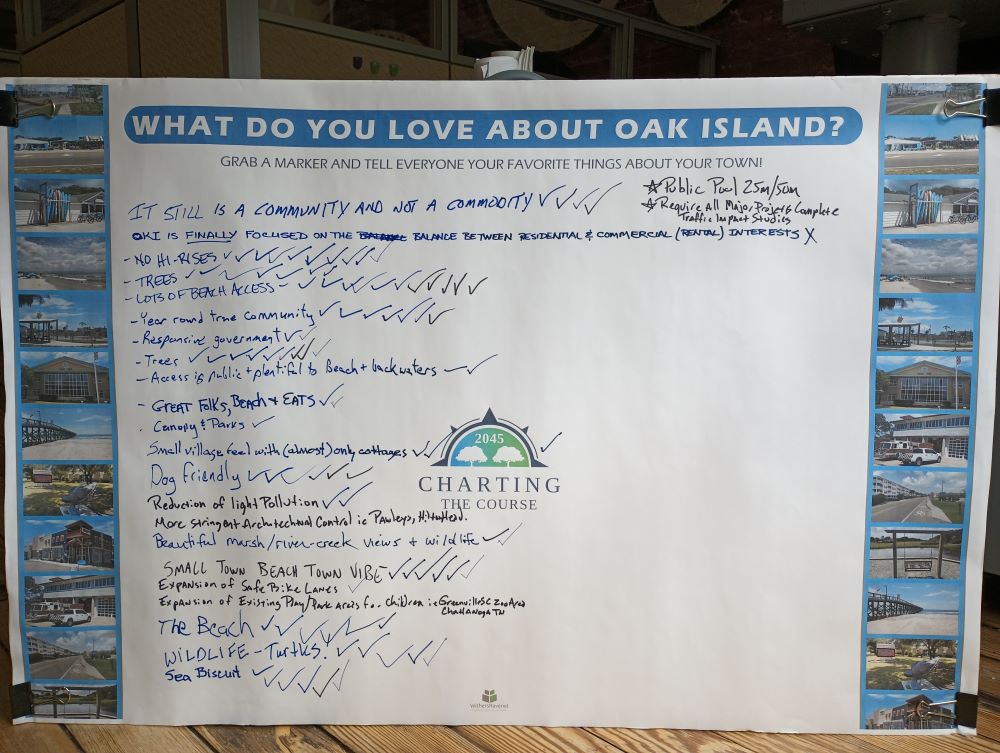 WHAT DO YOU LOVE ABOUT OAK ISLAND?
GRAB A MARKER AND TELL EVERYONE YOUR FAVORITE THINGS ABOUT YOUR TOWN!
☆ Public Pool 25m/50m
☆ Require All Major Projects Complete
Traffic Impact Studies
IT STILL IS A COMMUNITY AND NOT A COMMODITY ✓✓✓
OKI IS FINALLY FOCUSED ON THE BALANCE BETWEEN RESIDENTIAL & COMMERCIAL (RENTAL) INTERESTS X
- NO HI-RISES ✓✓✓✓✓✓✓✓✓
- TREES ✓✓✓✓✓✓✓✓
- LOTS OF BEACH ACCESS - ✓✓✓✓✓✓✓✓✓✓
- Year round true community ✓✓✓✓✓✓
- Responsive government ✓✓
- Trees ✓✓✓✓✓✓✓
- Access is public + plentiful to Beach + backwaters - ✓
- GREAT FOLKS, BEACH & EATS ✓✓
- Canopy & Parks ✓
Small village feel with (almost) only cottages ✓✓✓
2045
CHARTING
THE COURSE
Dog friendly ✓✓✓✓✓
Reduction of light Pollution ✓✓
More stringent Architectual Control ie Pawleys, Hiltonhead.
Beautiful marsh/river-creek views + wildlife ✓✓
SMALL TOWN BEACH TOWN VIBE ✓✓✓✓✓
Expansion of Safe Bike Lanes ✓
Expansion of Existing Play/Park Areas for Children ie Greenville SC Zoo Area
Chattanoga TN
The Beach ✓✓✓✓✓
WILDLIFE - Turtles! ✓✓✓✓✓
Sea Biscuit ✓✓✓✓✓
withersravenel